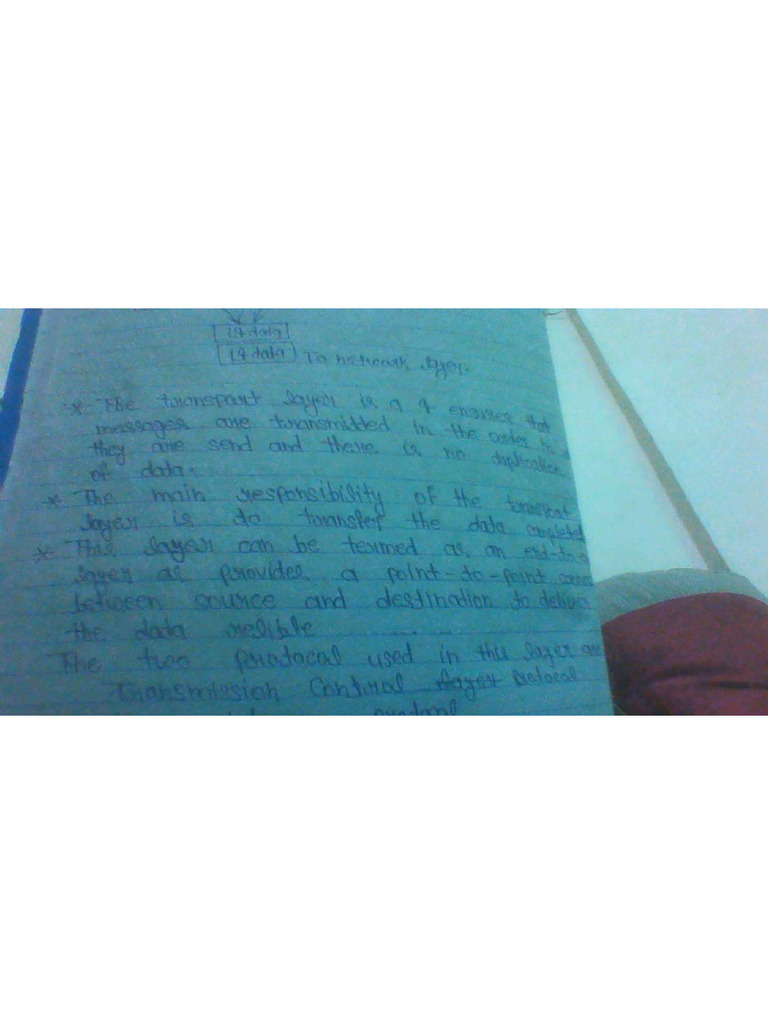 14 data
14 data To network layer.
* The transport layer is a 4 ensures that
messages are transmitted in the order
they are send and there is no duplication
of data.
* The main responsibility of the transport
layer is to transfer the data completely
* This layer can be termed as an end-to-
layer as provides a point-to-point
between source and destination to deliver
the data relible
The two protocal used in this layer are
Transmission Control layer Protocal